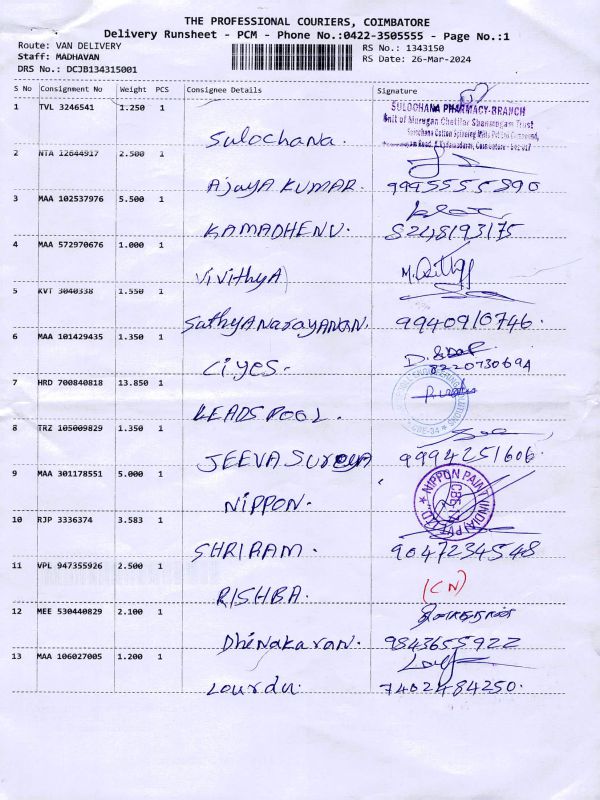 THE PROFESSIONAL COURIERS, COIMBATORE
Delivery Runsheet - PCM - Phone No.:0422-3505555 - Page No.:1
Route: VAN DELIVERY
Staff: MADHAVAN
DRS No.: DCJB134315001
RS No.: 1343150
RS Date: 26-Mar-2024
S No Consignment No Weight PCS Consignee Details Signature
1 TVL 3246541 1.250 1
SULOCHANA PHARMACY-BRANCH
Unit of Murugan Chettiar Shanmugam Trust
Sulochana Cotton Spinning Mills Pvt Ltd Compound,
Sulochana.
2 NTA 12644917 2.500 1
AJAYA KUMAR. 9995555890
3 MAA 102537976 5.500 1
KAMADHENU. 8248193175
4 MAA 572970676 1.000 1
ViVithyA M.
5 KVT 3040338 1.550 1
SathyANarayANAN. 9940910746.
6 MAA 101429435 1.350 1
Ci.yes.
7 HRD 700840818 13.850 1
CBE-04
LEADSPOOL.
8 TRZ 105009829 1.350 1
JEEVA SUrEyA 9994251606
9 MAA 301178551 5.000 1
NIPPON PAINT (INDIA) PVT LTD.
NiPPON.
10 RJP 3336374 3.583 1
SHRIRAM. 9047234548
11 VPL 947355926 2.500 1
(CN)
RISHBA.
12 MEE 530440829 2.100 1
DhENAKARAN. 9843655922
13 MAA 106027005 1.200 1
Lourdu. 7402484250.